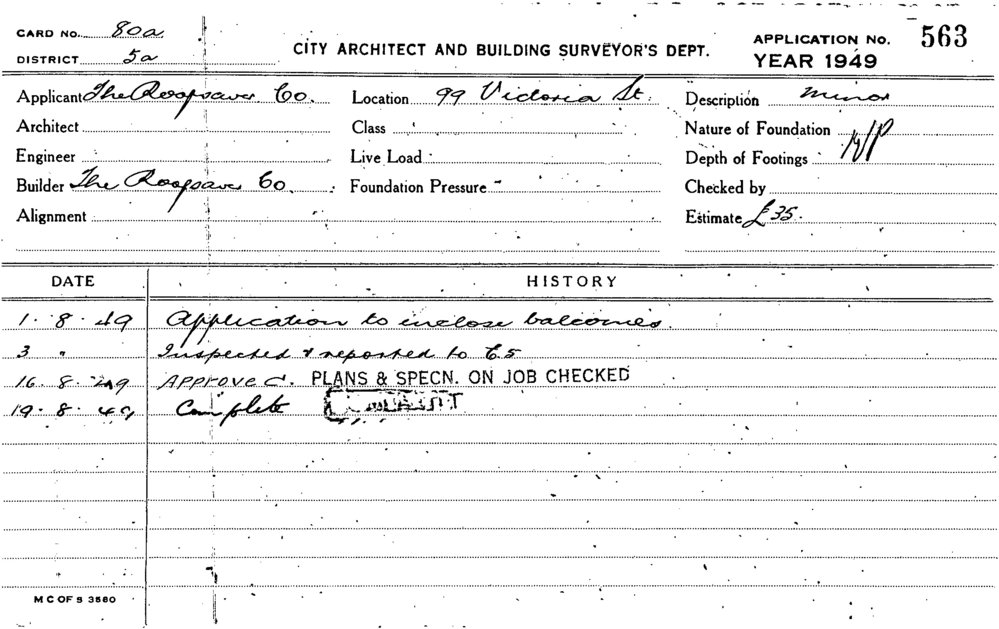 CARD No. 80a
DISTRICT 5a
CITY ARCHITECT AND BUILDING SURVEYOR'S DEPT.
APPLICATION No. 563
YEAR 1949
Applicant The Roofsaver Co. Location 99 Victoria St. Description Minor
Architect Class Nature of Foundation
Engineer Live Load Depth of Footings
Builder The Roofsaver Co. Foundation Pressure Checked by
Alignment Estimate £35.
DATE HISTORY
1. 8. 49 Application to inclose balconies.
3 " Inspected & reported to C.S
16. 8. 49 Approved. PLANS & SPECN. ON JOB CHECKED
19. 8. 49 Complete
M C OF S 3580